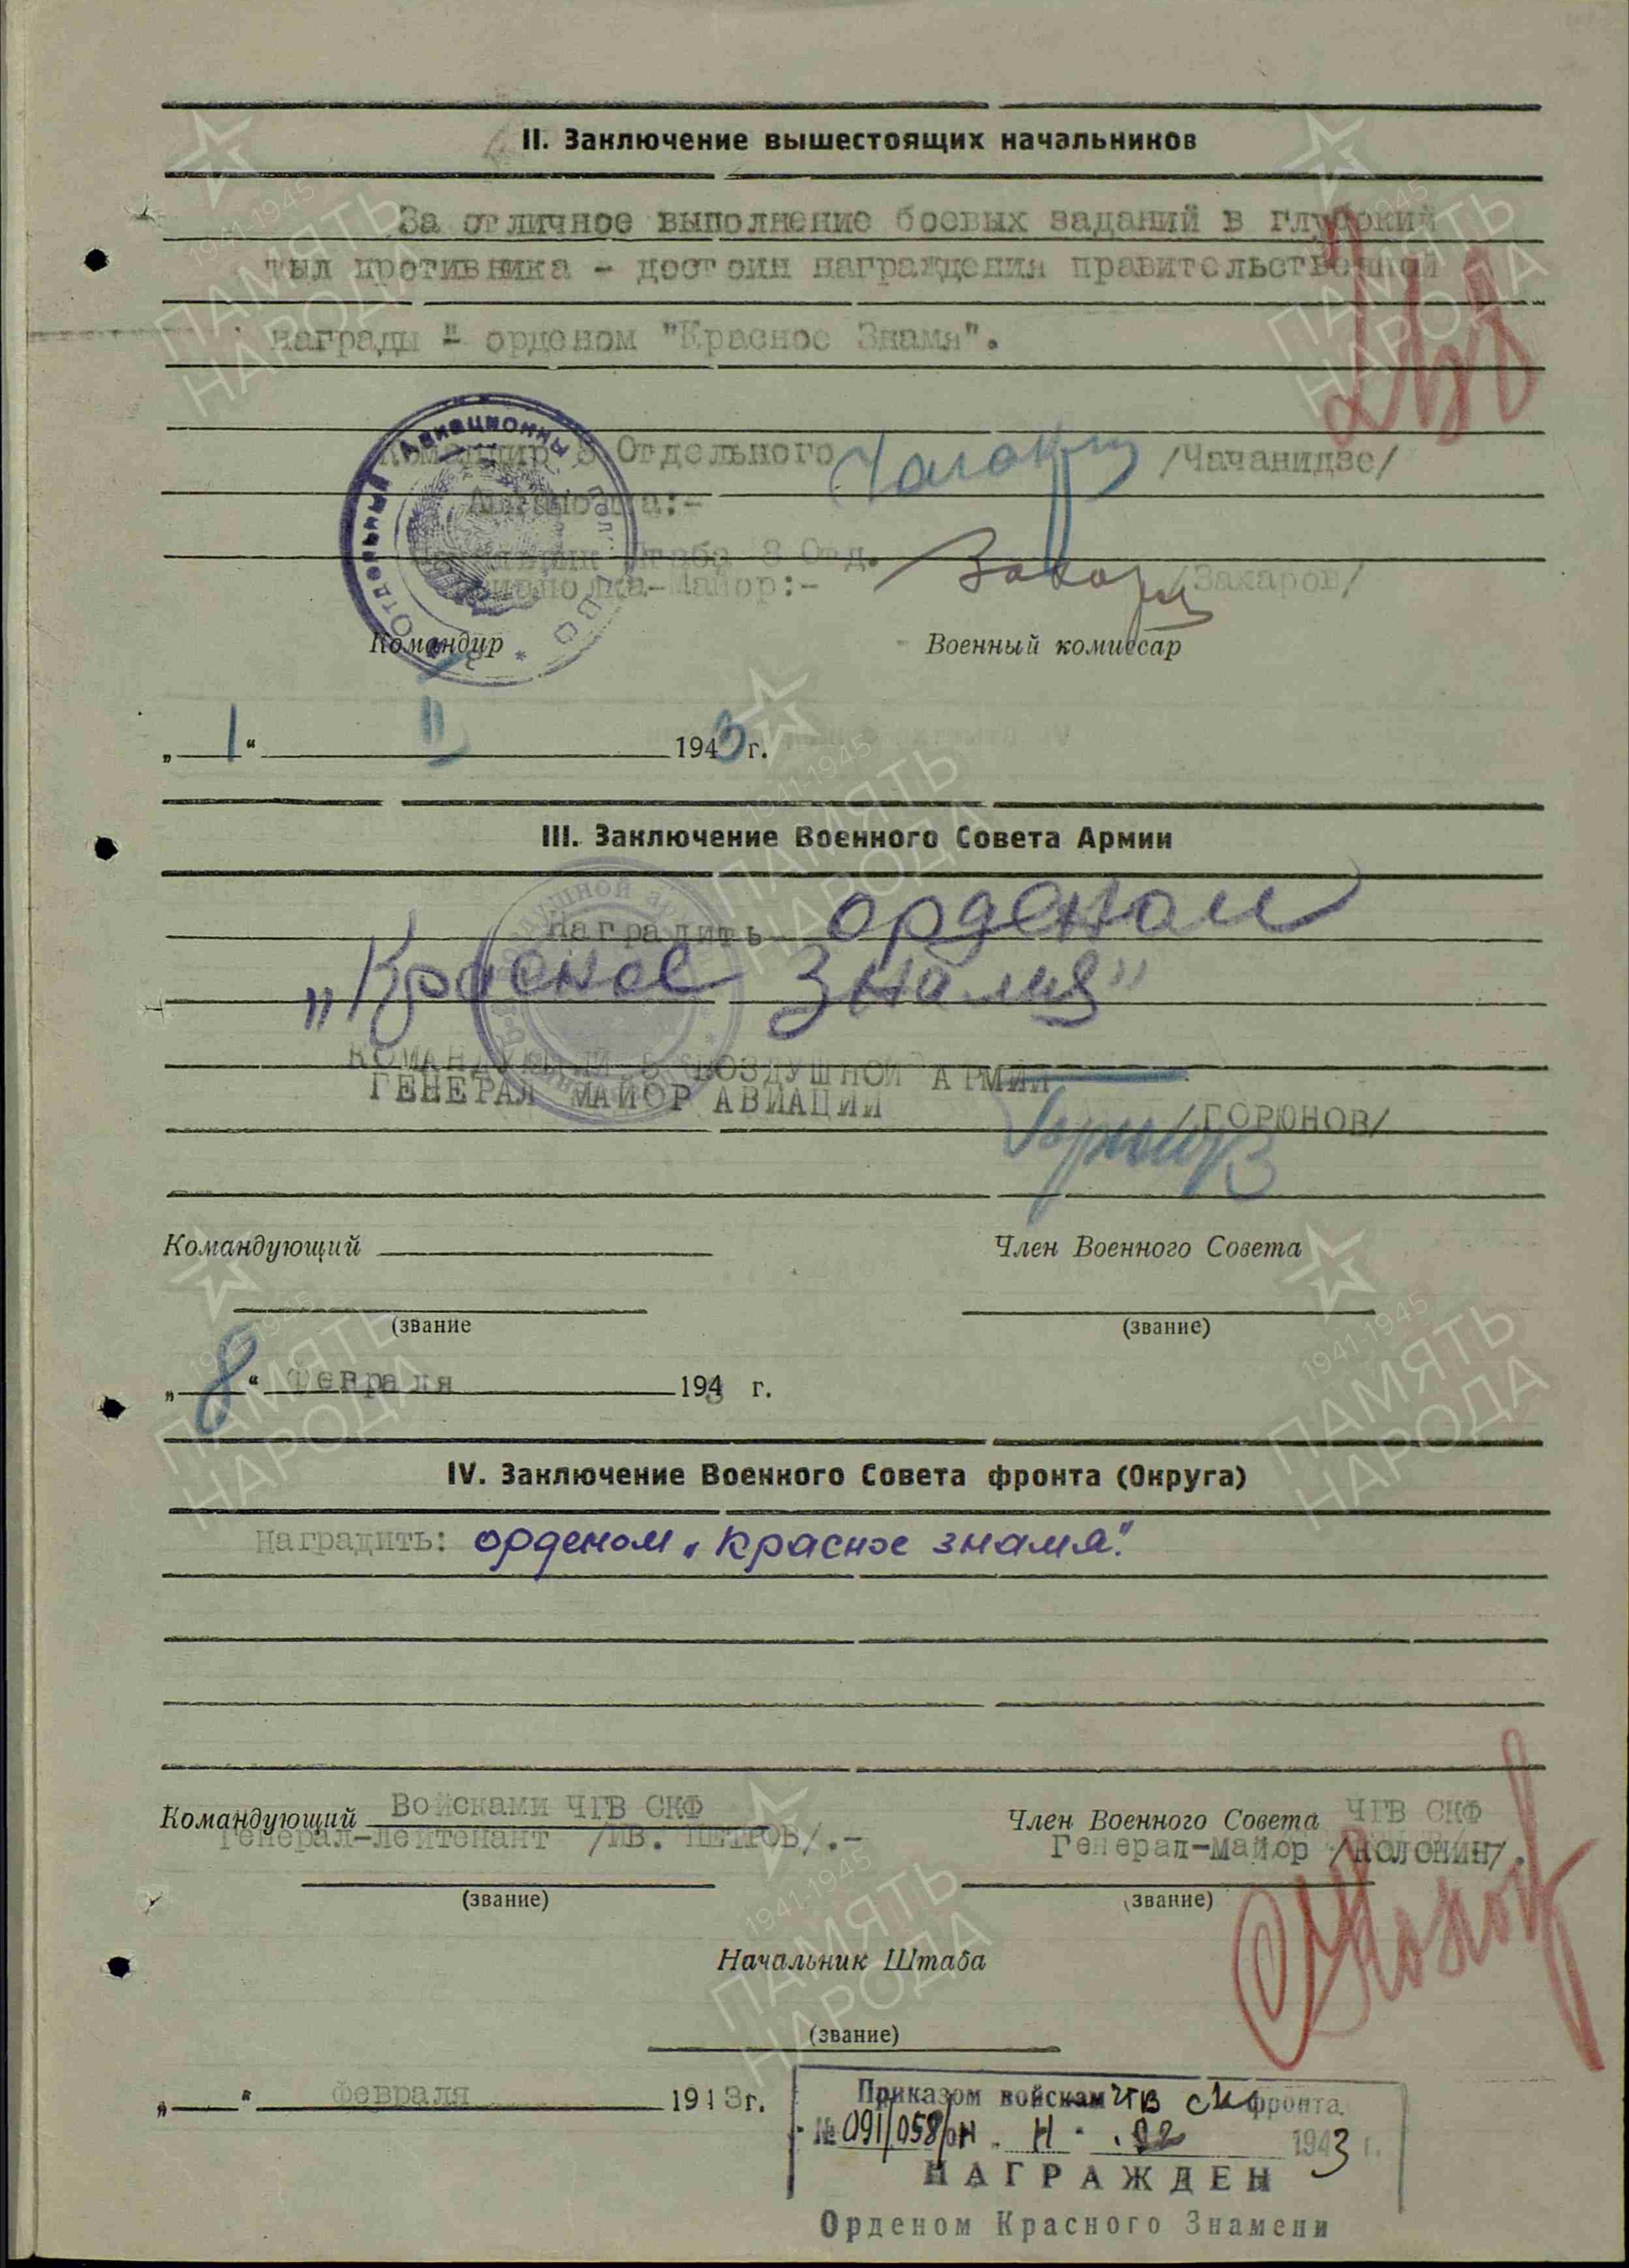 II. Заключение вышестоящих начальников
За отличное выполнение боевых заданий в глубокий
тыл противника - достоин награждения правительственной
награды - орденом "Красное Знамя".
Командир 8 Отдельного /Чачанидзе/
Авиаполка:-
Начальник Штаба 8 Отд.
Авиаполка-Майор:- /Захаров/
Командир Военный комиссар
„1“ II 1943 г.
III. Заключение Военного Совета Армии
Наградить орденом
„Красное Знамя"
КОМАНДУЮЩИЙ 5 ВОЗДУШНОЙ АРМИИ
ГЕНЕРАЛ МАЙОР АВИАЦИИ /ГОРЮНОВ/
Командующий Член Военного Совета
(звание (звание)
„8“ февраля 1943 г.
IV. Заключение Военного Совета фронта (Округа)
Наградить: орденом „Красное знамя".
Командующий Войсками ЧГВ СКФ Член Военного Совета ЧГВ СКФ
Генерал-лейтенант /ИВ. ПЕТРОВ/.- Генерал-майор /КОЛОНИН/.
(звание) (звание)
Начальник Штаба
(звание)
„ “ февраля 1943 г.
Приказом войскам ЧГВ СК фронта
№ 091/058/н .02 1943 г.
НАГРАЖДЕН
Орденом Красного Знамени
1941-1945
ПАМЯТЬ
НАРОДА